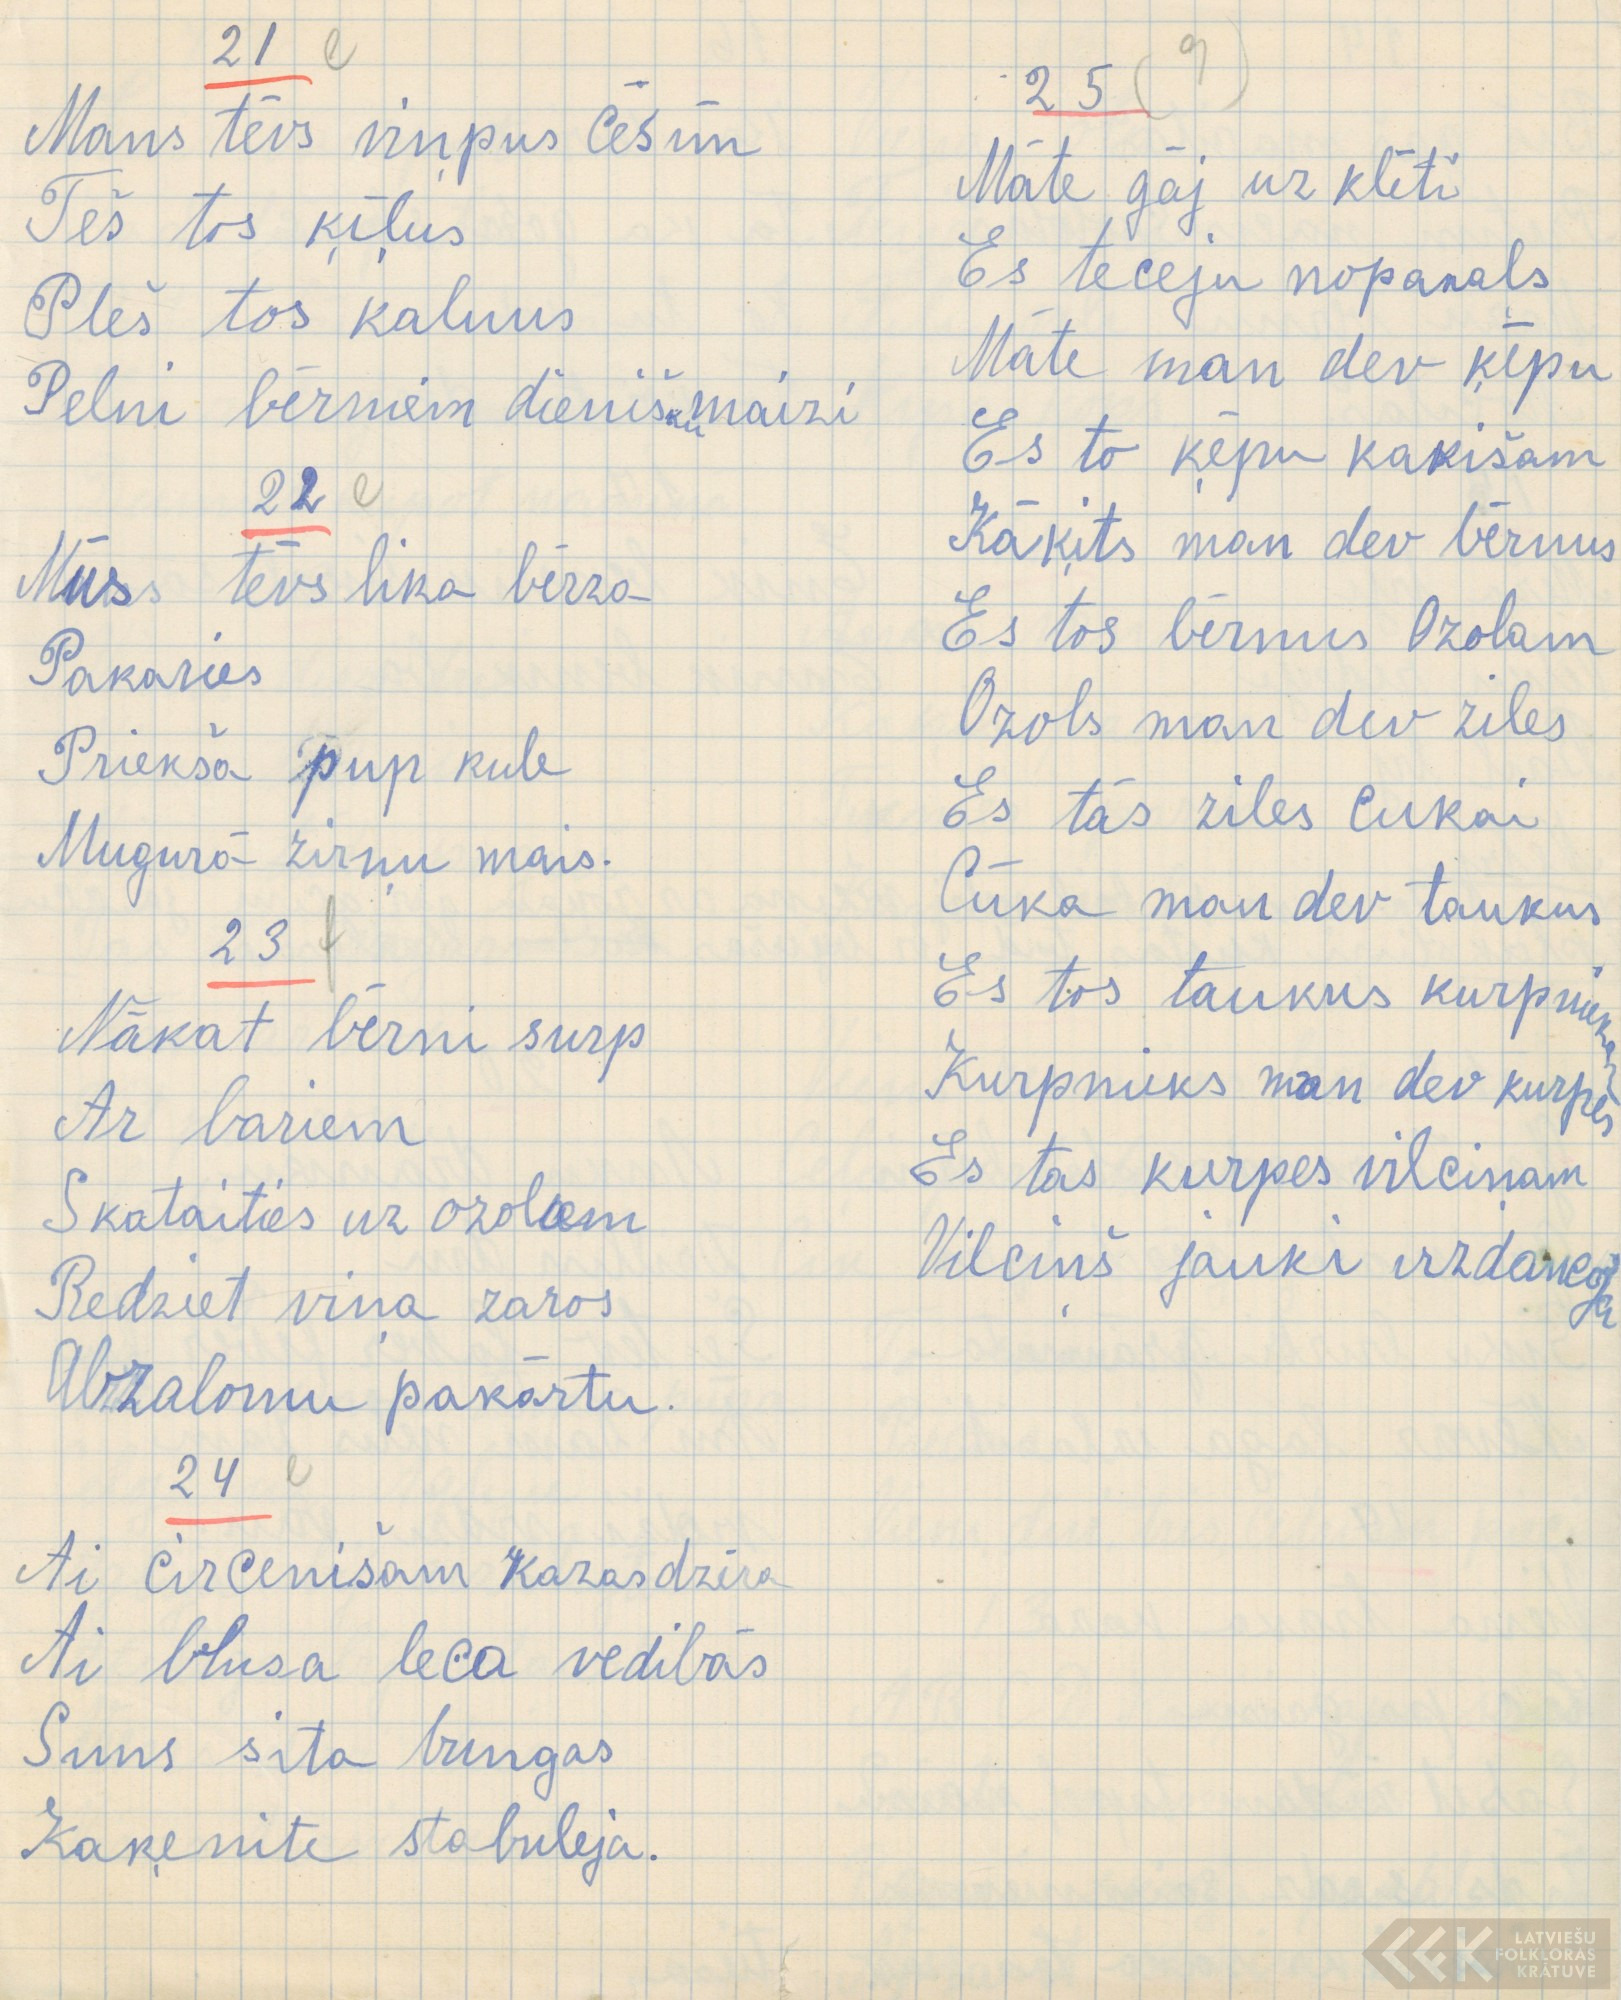 21 e
Mans tēvs viņpus Cēsūm
Tēš tos ķīļus
Plēš tos kalnus
Pelni bērniem dienišku maizi
22 e
Mūss tēvs lika bērza
Pakaries
Priekšā pup kule
Mugurā zirņu mais.
23 f
Nākat bērni surp
Ar bariem
Skataities uz ozolem
Redziet viņa zaros
Abzalomu pakārtu.
24 e
Ai circenišam kazas dzīra
Ai blusa leca vedibās
Suns sita bungas
Kaķenite stabuleja.
25 (9)
Māte gāj uz klēti
Es teceju nopakals
Māte man dev ķēpu
Es to ķēpu kakišam
Kāķits man dev bērnus
Es tos bērnus Ozolam
Ozols man dev ziles
Es tās ziles cukai
Cūka man dev taukus
Es tos taukus kurpniekam
Kurpnieks man dev kurpes
Es tas kurpes vilciņam
Vilciņš jauki izdancoja
LATVIEŠU
FOLKLORAS
KRĀTUVE